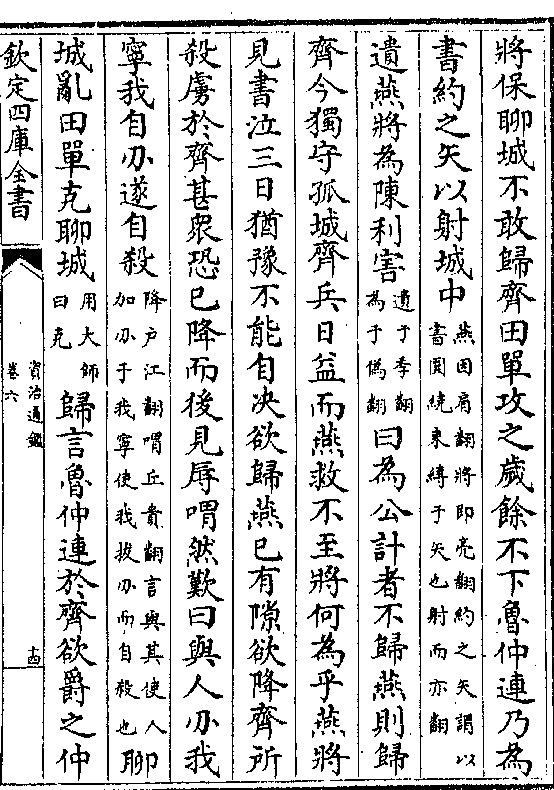 將保聊城不敢歸齊田單攻之歲餘不下魯仲連乃為
書約之矢以射城中燕因肩翻將即亮翻約之矢謂以書圜繞束縛于矢也射而亦翻
遺燕將為陳利害遺于季翻為于偽翻曰為公計者不歸燕則歸
齊今獨守孤城齊兵日益而燕救不至將何為乎燕將
見書泣三日猶豫不能自決欲歸燕已有隙欲降齊所
殺虜於齊甚衆恐已降而後見辱喟然歎曰與人刃我
寧我自刃遂自殺降户江翻喟丘貴翻言與其使人加刃于我寧使我拔刃而自殺也聊
城亂田單克聊城用大師曰克歸言魯仲連於齊欲爵之仲
欽定四庫全書
資治通鑑
卷六
十四